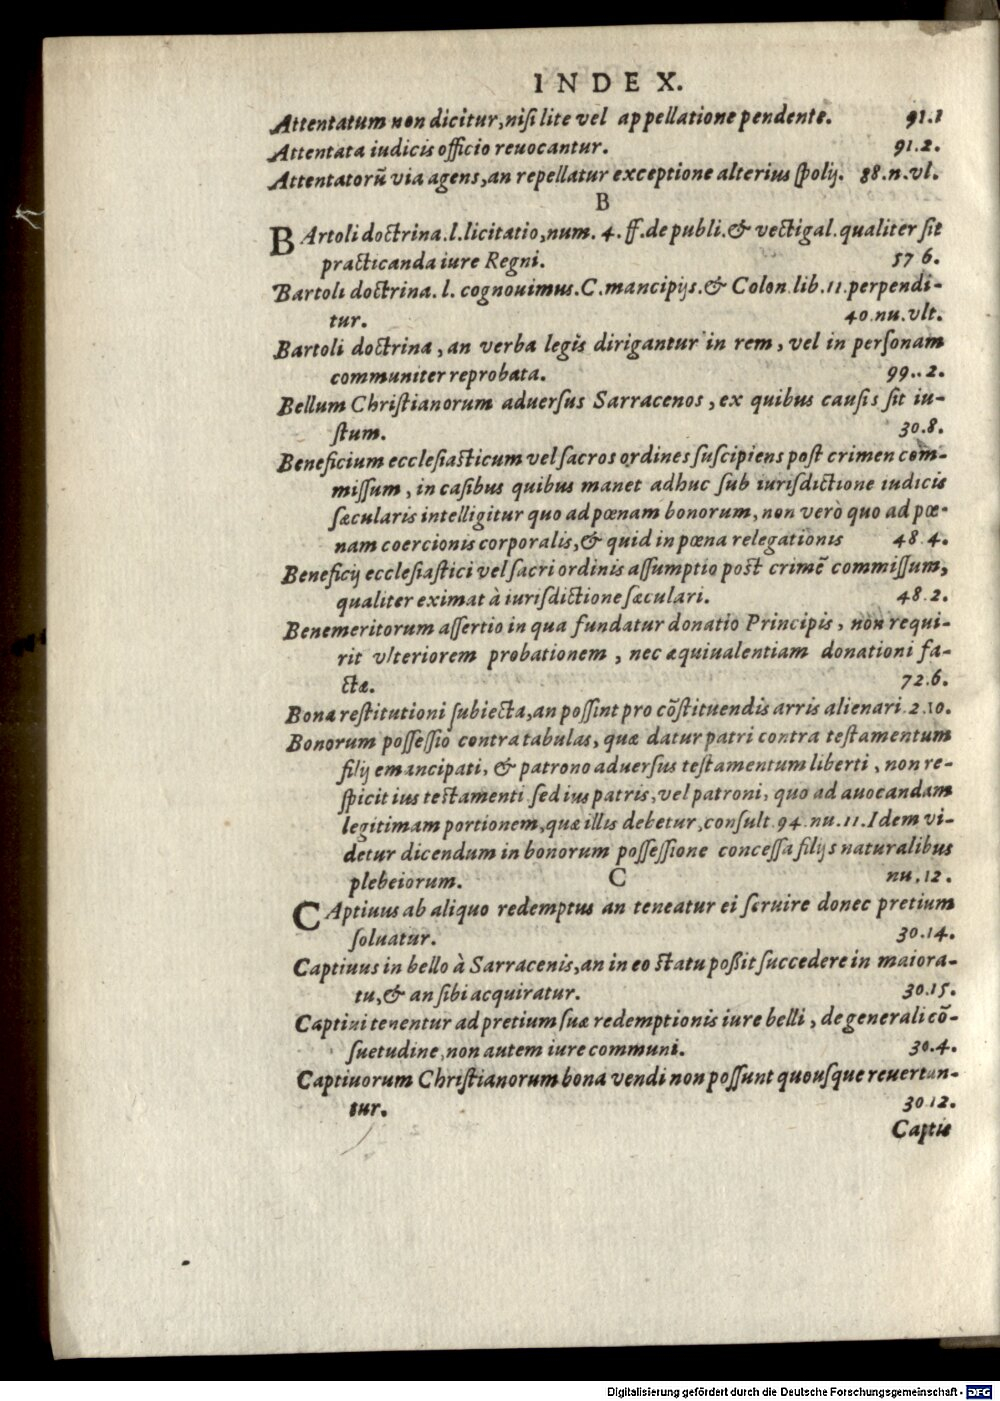 INDEX.
Attentatum non dicitur, nisi lite vel appellatione pendente. 91.1
Attentata iudicis officio reuocantur. 91.2.
Attentatorũ via agens, an repellatur exceptione alterius ſpolij. 88.n.vl.
B
BArtoli doctrina.l.licitatio, num. 4. ff.de publi.& vectigal.qualiter ſit
practicanda iure Regni. 57 6.
Bartoli doctrina. l. cognouimus.C.mancipijs.& Colon.lib.11.perpendi-
tur. 40.nu.vlt.
Bartoli doctrina, an verba legis dirigantur in rem, vel in perſonam
communiter reprobata. 99..2.
Bellum Chriſtianorum aduerſus Sarracenos, ex quibus cauſis ſit iu-
ſtum. 30.8.
Beneficium eccleſiaſticum vel ſacros ordines ſuſcipiens poſt crimen com-
miſſum, in caſibus quibus manet adhuc ſub iuriſdictione iudicis
ſæcularis intelligitur quo ad pœnam bonorum, non verò quo ad pœ-
nam coercionis corporalis, & quid in pœna relegationis 48.4.
Beneficij eccleſiaſtici vel ſacri ordinis aſſumptio poſt crimẽ commiſſum,
qualiter eximat à iuriſdictione ſæculari. 48.2.
Benemeritorum aſſertio in qua fundatur donatio Principis, non requi-
rit vlteriorem probationem, nec æquiualentiam donationi fa-
ctæ. 72.6.
Bona reſtitutioni ſubiecta, an poſſint pro cõſtituendis arris alienari.2.10.
Bonorum poſſeſſio contra tabulas, quæ datur patri contra teſtamentum
filij emancipati, & patrono aduerſus teſtamentum liberti, non re-
ſpicit ius teſtamenti ſed ius patris, vel patroni, quo ad auocandam
legitimam portionem, quæ illis debetur, conſult.94.nu.11.Idem vi-
detur dicendum in bonorum poſſeſſione conceſſa filijs naturalibus
plebeiorum. nu.12.
C
CAptiuus ab aliquo redemptus an teneatur ei ſeruire donec pretium
ſoluatur. 30.14.
Captiuus in bello à Sarracenis, an in eo ſtatu poßit ſuccedere in maiora-
tu, & an ſibi acquiratur. 30.15.
Captiui tenentur ad pretium ſuæ redemptionis iure belli, de generali cõ-
ſuetudine, non autem iure communi. 30.4.
Captiuorum Chriſtianorum bona vendi non poſſunt quouſque reuertan-
tur. 30.12.
Captis
Digitalisierung gefördert durch die Deutsche Forschungsgemeinschaft - DFG